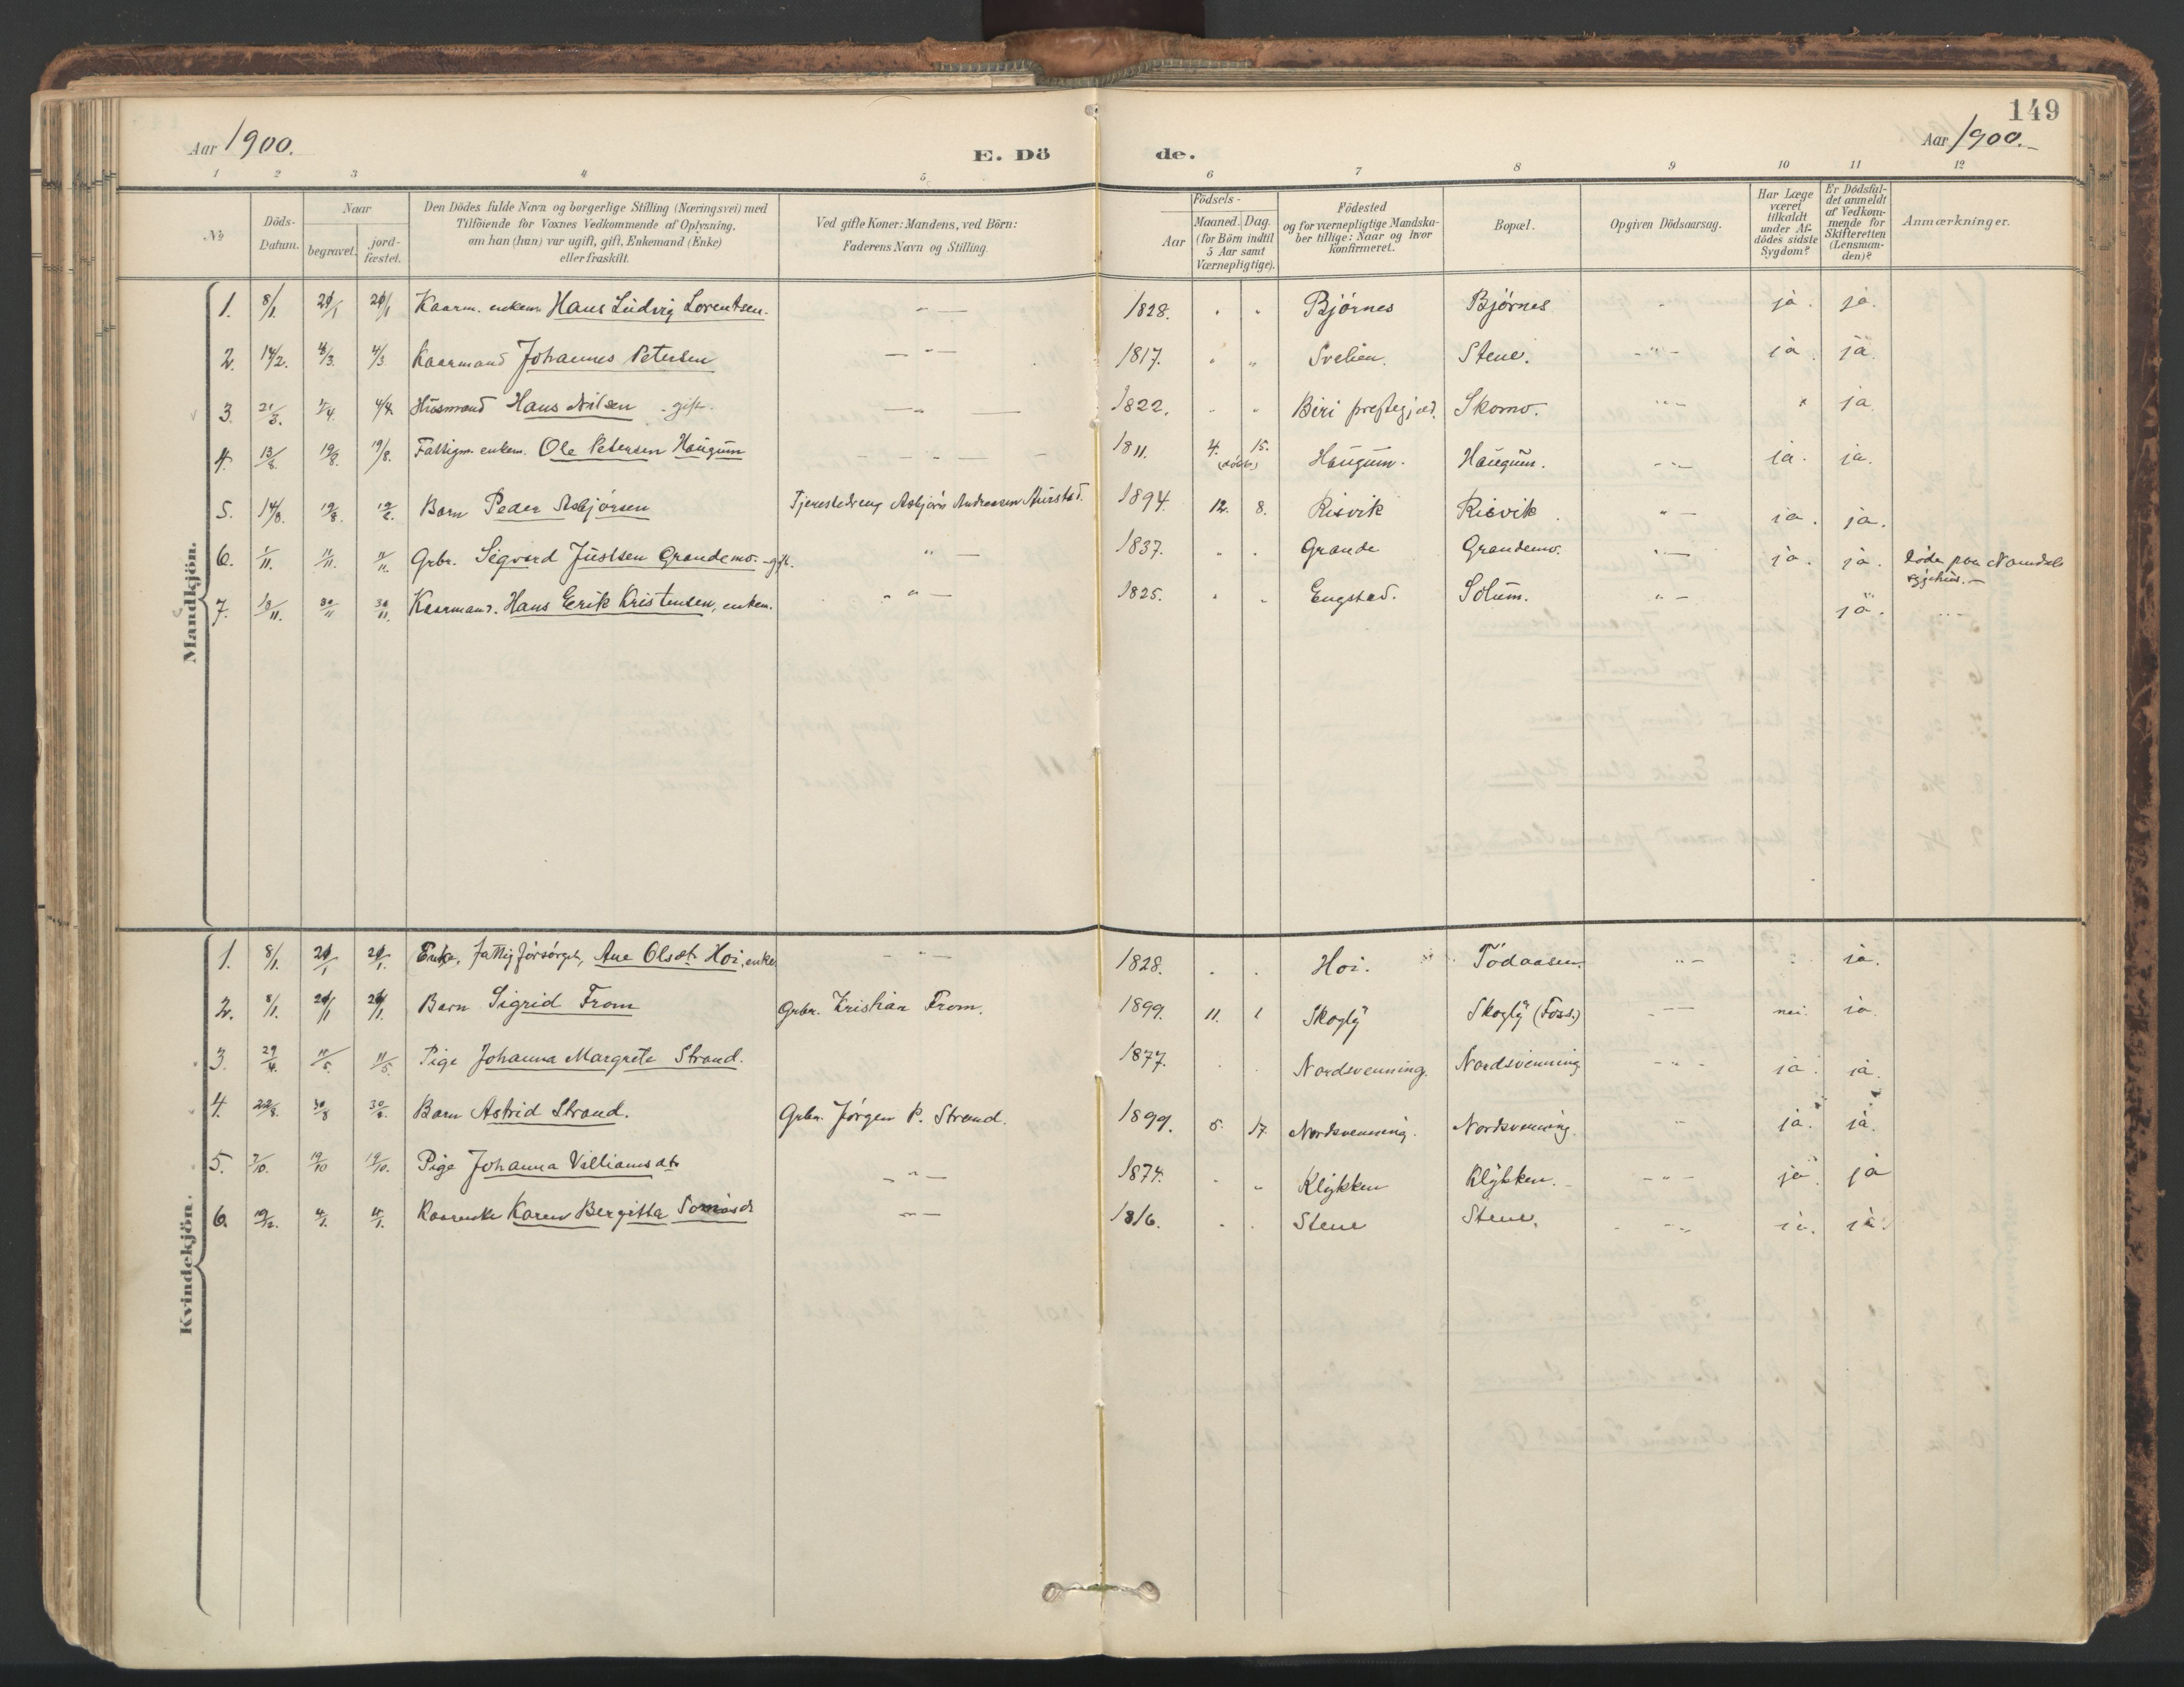 149
Aar 1900. E. Dö de. Aar 1900.
1 2 3 4 5 6 7 8 9 10 11 12
No
Döds-Datum.
Naar
begravet.
jord-fæstet.
Den Dödes fulde Navn og borgerlige Stilling (Næringsvei) med
Tilföiende for Voxnes Vedkommende af Oplysning,
om han (hun) var ugift, gift, Enkemand (Enke)
eller fraskilt.
Ved gifte Koner: Mandens, ved Börn:
Faderens Navn og Stilling.
Födsels-
Aar
Maaned. Dag.
(for Börn indtil
5 Aar samt
Værnepligtige).
Födested
og for værnepligtige Mandska-
ber tillige: Naar og hvor
konfirmeret.
Bopæl.
Opgiven Dödsaarsag.
Har Læge
været
tilkaldt
under Af-
dödes sidste
Sygdom?
Er Dödsfal-
det anmeldt
af Vedkom-
mende for
Skifteretten
(Lensman-
den)?
Anmærkninger.
Mandkjön.
1. 8/1. 21/1 21/1 Kaarm. enkem. Hans Ludvig Lorentsen. - " - 1828. " " Bjørnes Bjørnes " ja. ja.
2. 14/2. 4/3. 4/3 Kaarmand Johannes Petersen - " - 1817. " " Svelien. Stene. - " - ja ja.
3. 21/3. 4/4. 4/4. Husmand Hans Nilsen - gift. - " - 1822. " " Biri prestegjæld. Skomo. " - ja
4. 13/8. 19/8. 19/8. Fattigm. enkem. Ole Petersen Haugum - - - 1811. 4. 15. (døbt) Haugum. Haugum. - " - ja. ja.
5. 14/8. 19/8. 19/8. Barn Peder Asbjørsen Tjenestedreng Asbjørn Andreassen Aurstad. 1894. 12. 8. Risvik Risvik. " - ja. ja.
6. 1/11. 11/11. 11/11. Gbr. Sigvard Justsen Grandemo. - gift. " - 1837. " " Grande Grandemo. " - ja. ja. Døde paa Namdals
sygehus. -
7. 18/11. 30/11 30/11. Kaarmand. Hans Erik Kristensen, enkem. - " - 1825. " " Engstad. Solum. " - ja.
Kvindekjön.
1. 8/1. 21/1 21/1. Enke, fattigforsørget, Ane Olsdt. Hoi, enke. - " - 1828. " " Hoi. Tødaasen. " - ja.
2. 8/1. 21/1 21/1. Barn Sigrid From Grbr. Kristian From. 1899. 11. 1 Skogly Skogly (Foss.) - " - nei. ja.
3. 29/4. 11/5. 11/5. Pige Johanna Margrete Strand. 1877. " " Nordsvenning. Nordsvenning - " - ja. ja.
4. 22/8. 30/8 30/8. Barn Astrid Strand. Grbr. Jørgen P. Strand. 1899. 5. 17. Nordsvenning. Nordsvenning. " ja. ja.
5. 7/10. 19/10 19/10. Pige Johanna Villiamsdt. - " - 1874. " " Klykken Klykken. - " - ja. ja
6. 19/12. 4/1. 4/1. Kaarenke Karen Bergitta - " - 1816. " " Stene Stene. - " - ja. ja.